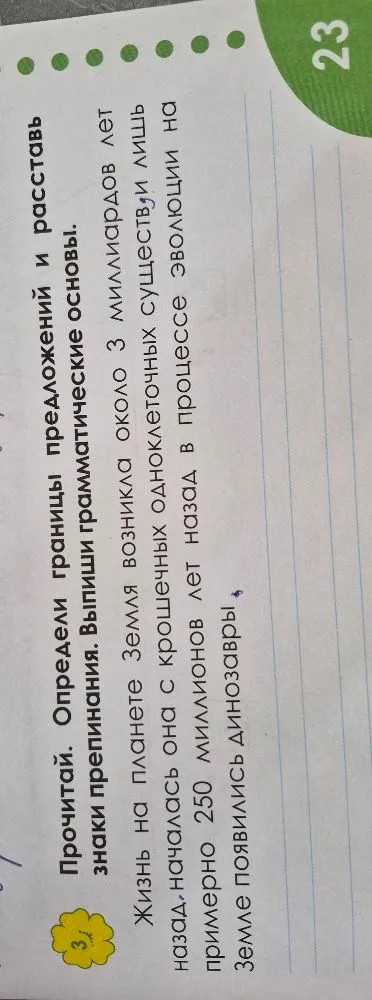 23
3
Прочитай. Определи границы предложений и расставь
знаки препинания. Выпиши грамматические основы.
Жизнь на планете Земля возникла около 3 миллиардов лет
назад, началась она с крошечных одноклеточных существ, и лишь
примерно 250 миллионов лет назад в процессе эволюции на
Земле появились динозавры.